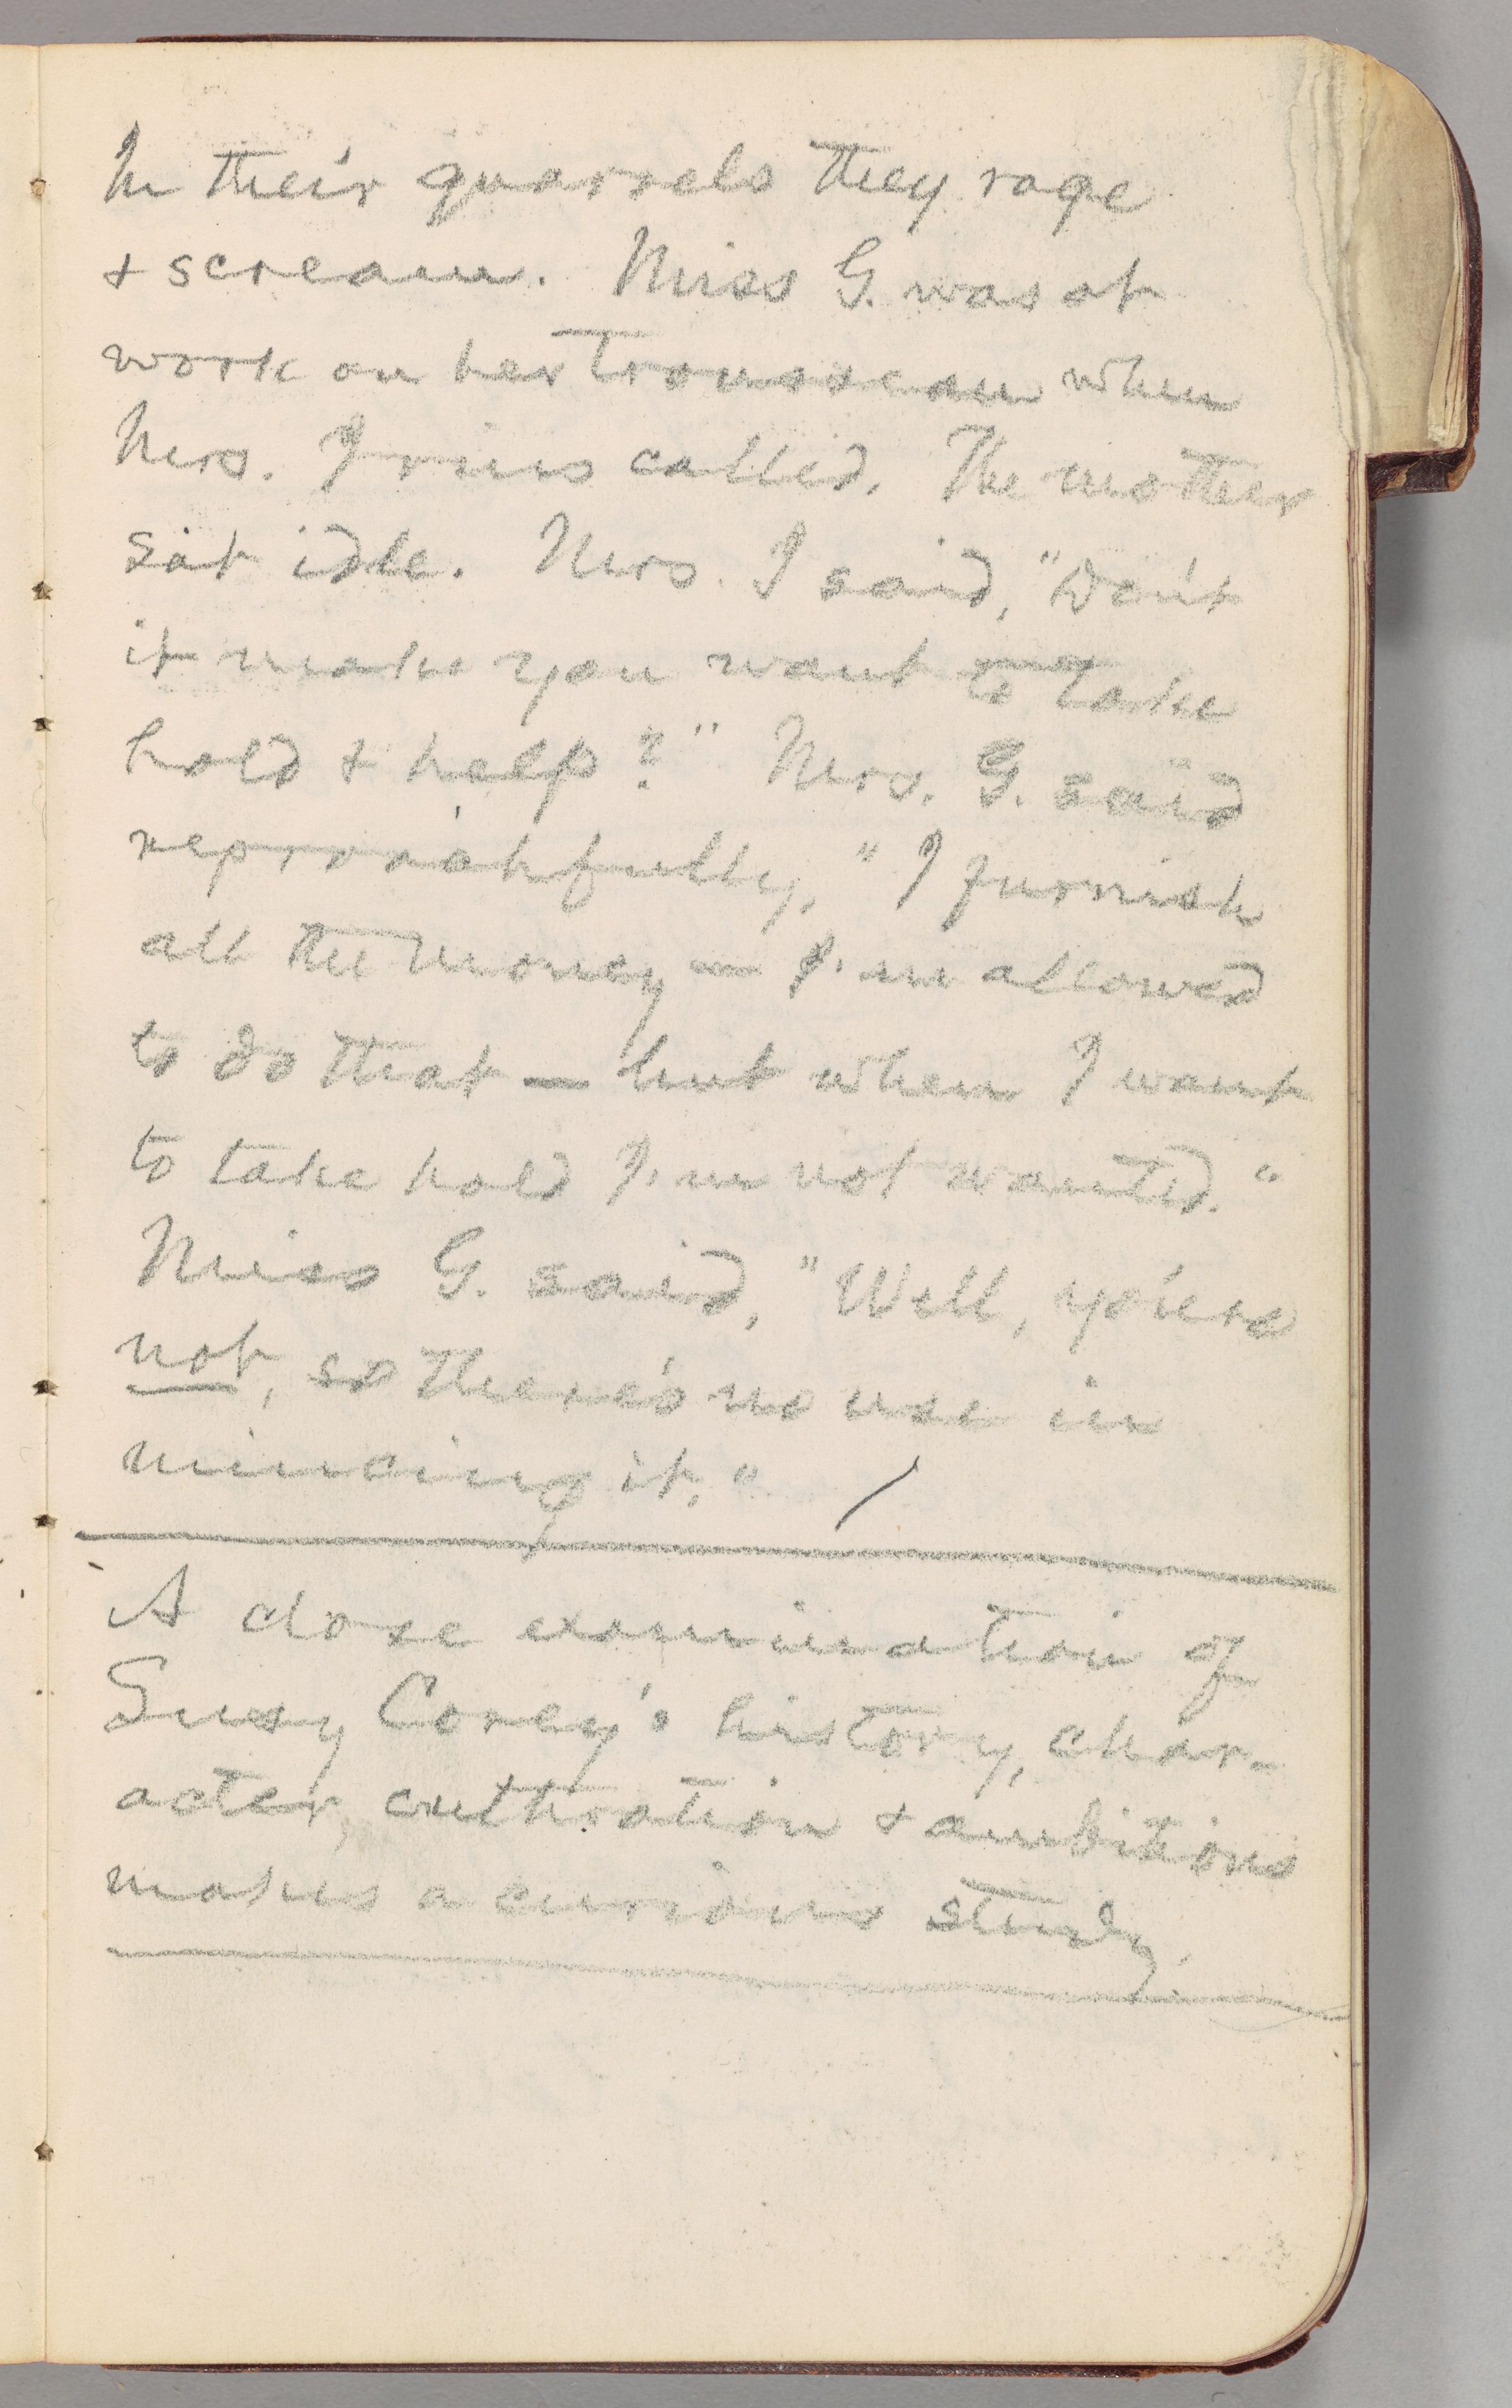 In their quarrels they rage
+ scream. Miss G. was at
work on her trousseau when
Mrs. Irvins called. The mother
sat idle. Mrs. I said, "Don't
it make you want to take
hold + help?" Mrs. G. said
reproachfully, "I furnish
all the money — I'm allowed
to do that — but when I want
to take hold I'm not wanted."
Miss G. said, "Well, you're
not, so there's no use in
mincing it."
A close examination of
Susy Corey's history, char-
acter, cultivation + ambitions
makes a curious study.